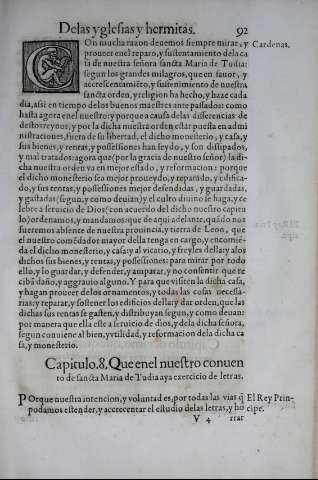 Delas yglesias y hermitas. 92
COn mucha razon deuemos siempre mirar, y Cardenas.
proueer enel reparo, y sustentamiento dela ca
sa de nuestra señora sancta Maria de Tudia:
segun los grandes milagros, que en fauor, y
accrescentamiẽto, y sustenimiento de nuestra
sancta orden, y religion ha hecho, y haze cada
dia, assi en tiempo delos buenos maestres ante passados: como
hasta agora enel nuestro: y porque a causa delas differencias de
destos reynos, y por la dicha nuestra orden estar puesta en admi
nistraciones, fuera de su libertad, el dicho monesterio, y casa, y
sus bienes, y rentas, y possessiones han seydo, y son dissipados,
y mal tratados: agora que (por la gracia de nuestro señor) la di-
cha nuestra orden va en mejor estado, y reformacion: porque
el dicho monesterio sea mejor proueydo, y repartado, y edifica-
do, y sus rentas, y possessiones mejor defendidas, y guardadas,
y gastadas (segun, y como deuian) y el culto diuino se haga, y ce
lebre a seruicio de Dios (con acuerdo del dicho nuestro capitu
lo) ordenamos, y mandamos: que de aqui adelante, quãdo nos
fueremos absente de nuestra prouincia, y tierra de Leon, que
el nuestro comẽdador mayor della tenga en cargo, y encomiẽ-
da el dicho monesterio, y casa: y al vicario, y freyles della: y alos
dichos sus bienes, y rentas, y possessiones: para mirar por todo
ello, y lo guardar, y defender, y amparar, y no consentir que re
cibã daño, y aggrauio alguno. Y para que visiten la dicha casa,
y hagan proueer de los ornamentos, y todas las cosas necessa-
rias: y reparar, y sostener los edificios della: y dar orden, que las
dichas sus rentas se gasten, y distribuyan segun, y como deuan:
por manera que ella este a seruicio de dios, y dela dicha señora,
segun conuiene al bien, y vtilidad, y reformacion dela dicha ca
sa, y monesterio.
Capitulo. 8. Que enel nuestro conuen
to de sancta Maria de Tudia aya exercicio de letras.
POrque nuestra intencion, y voluntad es, por todas las vias q̃ El Rey Prin-
podamos estender, y accrecentar el estudio delas letras, y ho cipe.
V 4 rrar